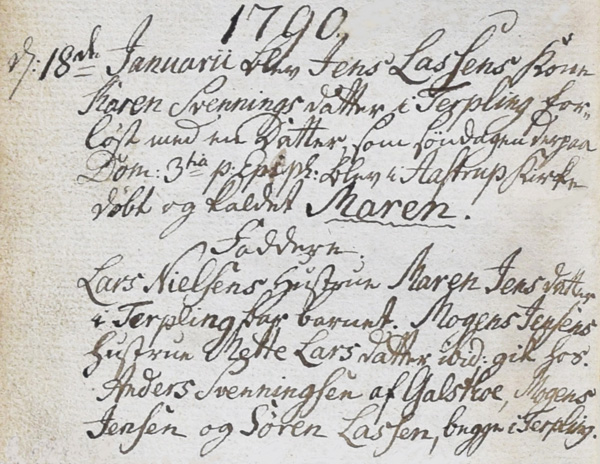 1790.
d: 18de Januarii blev Jens Lassens Kone
Karen Svennings datter i Terpling for=
løst med en Datter, som søndagen derpaa
Dom: 3tia p: Epiph: blev i Aastrup Kirke
døbt og kaldet Maren.
Faddere.
Lars Nielsens Hustrue Maren Jens datter
i Terpling bar barnet. Mogens Jensens
Hustrue Mette Lars datter ibid: gik hos.
Anders Svenningsen af Galsthoe, Mogens
Jensen og Søren Lassen, begge i Terpling.